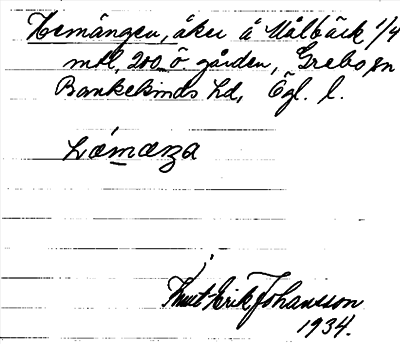 Hemängen, åker å Målbäck 1/4
mtl, 200 ö. gården, Grebo sn
Bankekinds hd, Ögl. l.
hæmæŋa
Knut-Erik Johansson
1934.